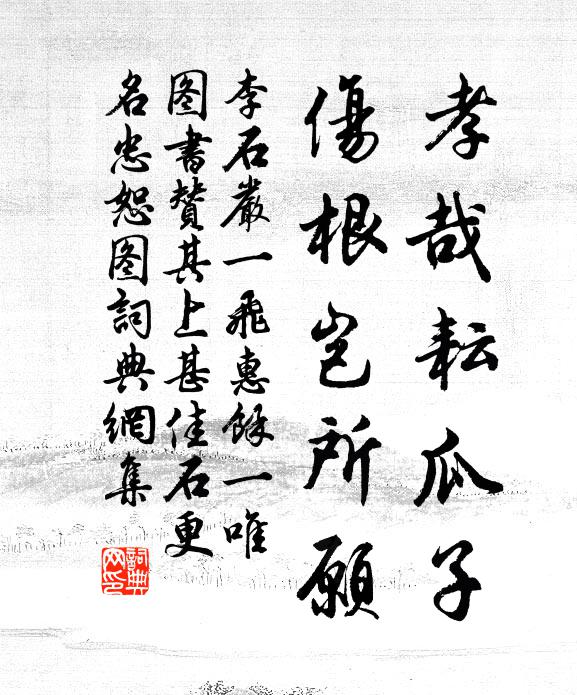 孝哉耘瓜子
傷根豈所願
李石嚴一飛惠餘一唯
图書贊其上甚佳石更
名忠恕图詞典網集
詞典网印